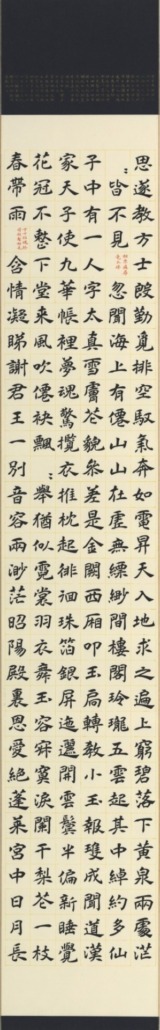 思遂教方士殷勤覓排空馭氣奔如電昇天入地求之遍上窮碧落下黃泉兩處茫
〻皆不見忽聞海上有僊山山在虛無縹緲間樓閣玲瓏五雲起其中綽約多仙
子中有一人字太真雪膚花貌參差是金闕西廂叩玉扃轉教小玉報雙成聞道漢
家天子使九華帳裡夢魂驚攬衣推枕起徘徊珠箔銀屏迤邐開雲鬢半偏新睡覺
花冠不整下堂來風吹僊袂飄〻舉猶似霓裳羽衣舞玉容寂寞淚闌干梨花一枝
春帶雨含情凝睇謝君王一別音容兩渺茫昭陽殿裏恩愛絕蓬萊宮中日月長